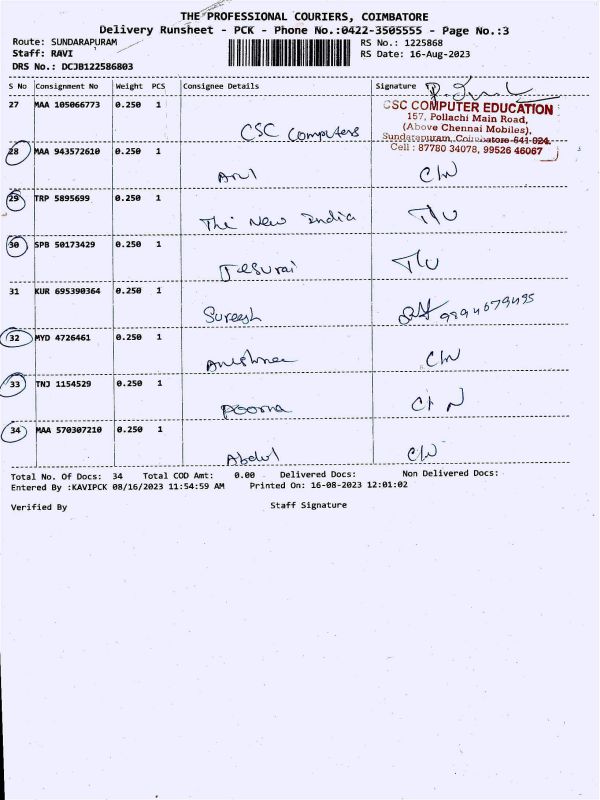 THE PROFESSIONAL COURIERS, COIMBATORE
Delivery Runsheet - PCK - Phone No.:0422-3505555 - Page No.:3
Route: SUNDARAPURAM RS No.: 1225868
Staff: RAVI RS Date: 16-Aug-2023
DRS No.: DCJB122586803
S No Consignment No Weight PCS Consignee Details Signature
27 MAA 105066773 0.250 1 CSC Computers
CSC COMPUTER EDUCATION
157, Pollachi Main Road,
(Above Chennai Mobiles),
Sundarapuram, Coimbatore-641 024.
Cell : 87780 34078, 99526 46067
28 MAA 943572610 0.250 1 Arul C/N
29 TRP 5895699 0.250 1 The New India
30 SPB 50173429 0.250 1 Jesurai
31 KUR 695390364 0.250 1 Suresh
32 MYD 4726461 0.250 1 C/N
33 TNJ 1154529 0.250 1 Poorna C/N
34 MAA 570307210 0.250 1 Abdul C/N
Total No. Of Docs: 34 Total COD Amt: 0.00 Delivered Docs: Non Delivered Docs:
Entered By :KAVIPCK 08/16/2023 11:54:59 AM Printed On: 16-08-2023 12:01:02
Verified By Staff Signature